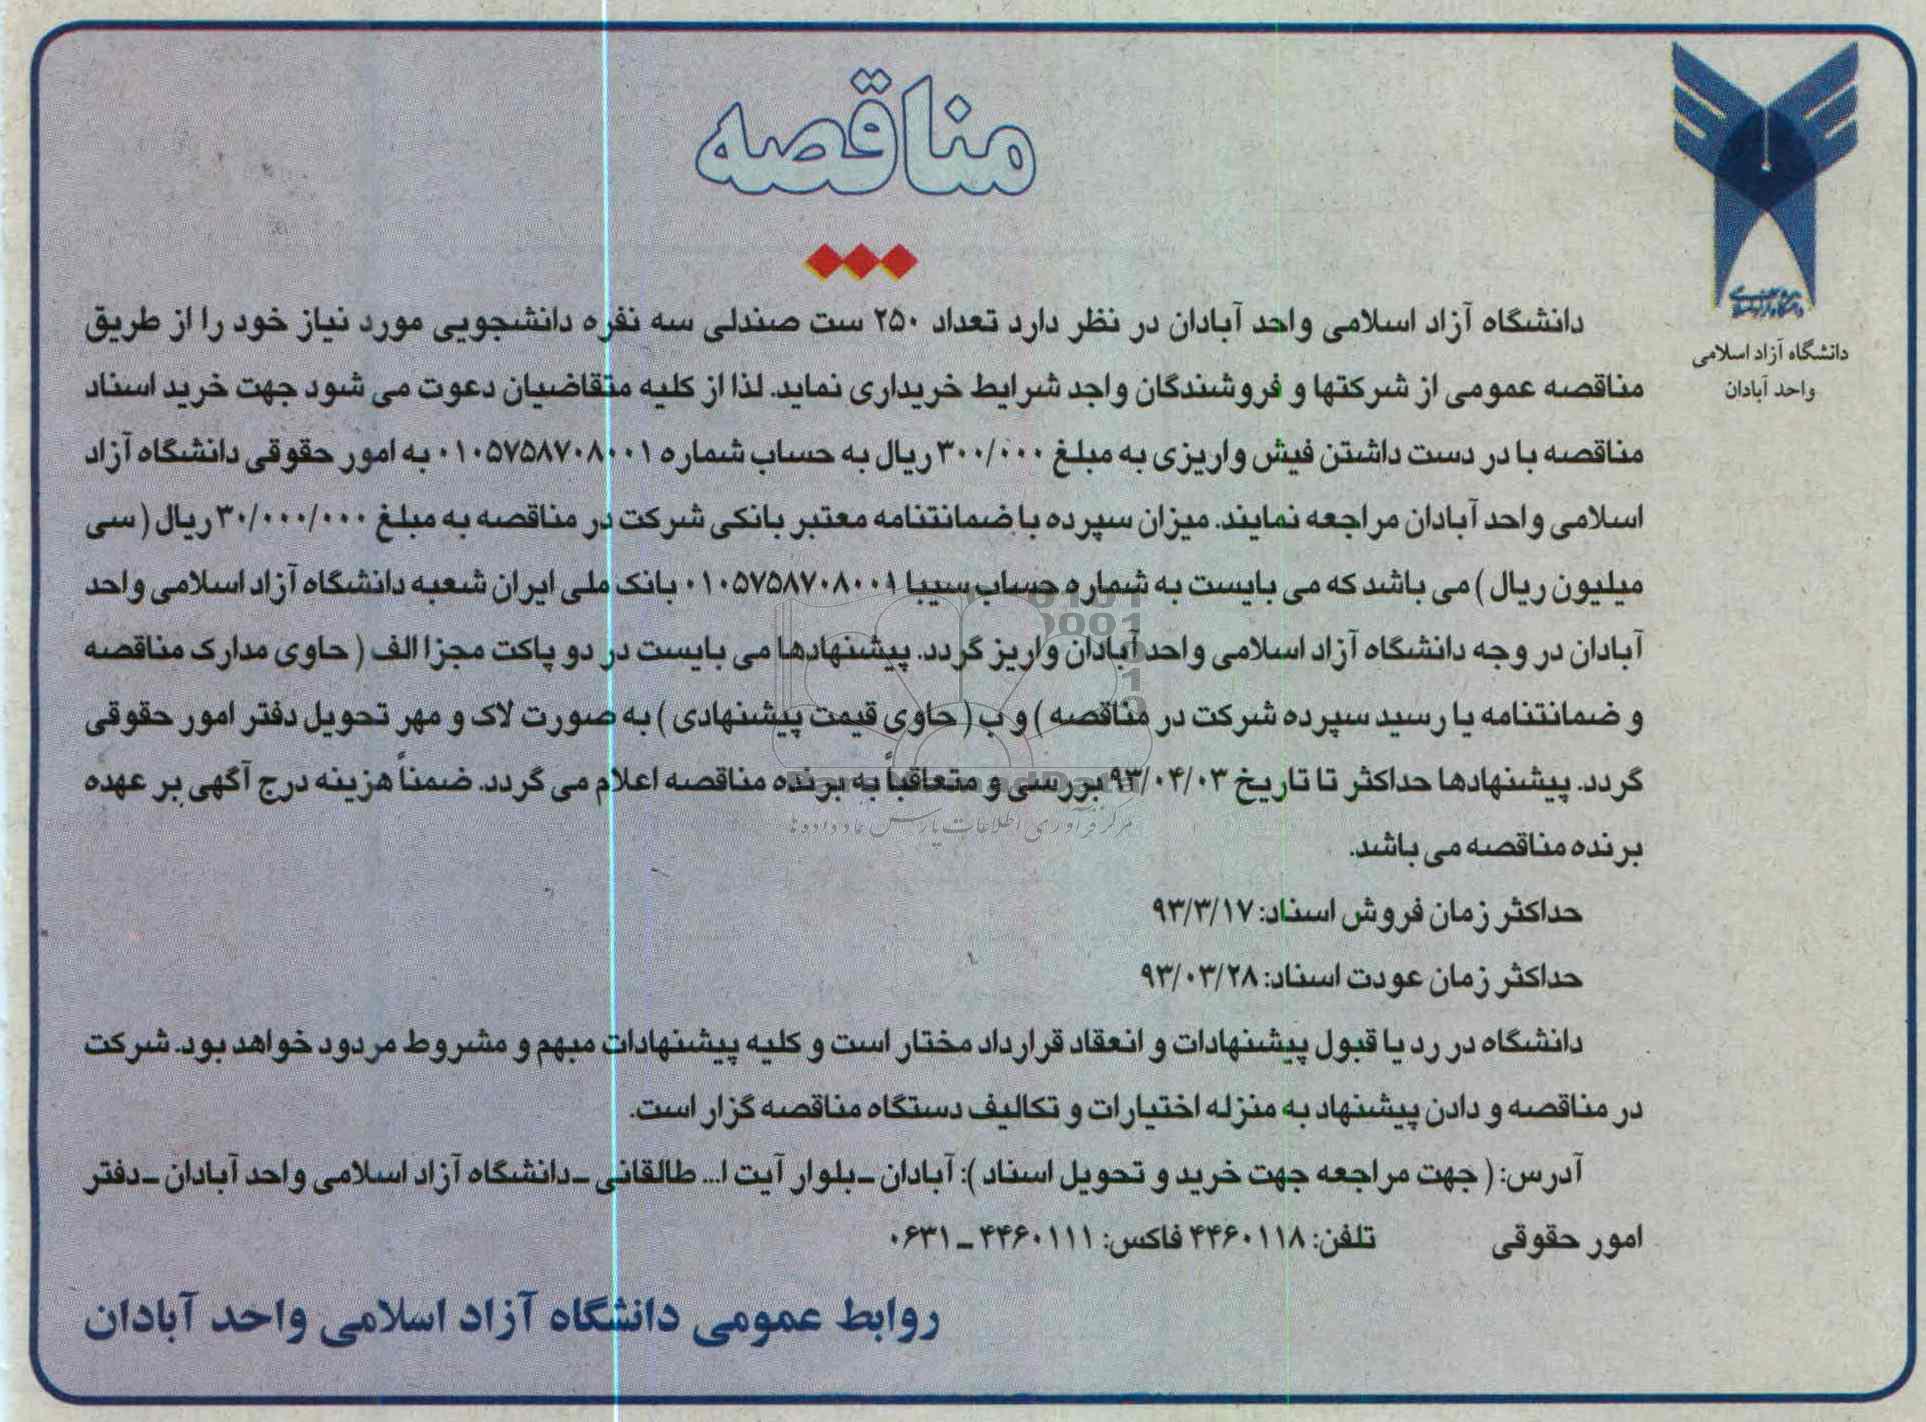 مناقصه
دانشگاه آزاد اسلامی
واحد آبادان
دانشگاه آزاد اسلامی واحد آبادان در نظر دارد تعداد ۲۵۰ ست صندلی سه نفره دانشجویی مورد نیاز خود را از طریق
مناقصه عمومی از شرکتها و فروشندگان واجد شرایط خریداری نماید. لذا از کلیه متقاضیان دعوت می شود جهت خرید اسناد
مناقصه با در دست داشتن فیش واریزی به مبلغ ۳۰۰/۰۰۰ ریال به حساب شماره ۰۱۰۵۷۵۸۷۰۸۰۰۱ به امور حقوقی دانشگاه آزاد
اسلامی واحد آبادان مراجعه نمایند. میزان سپرده یا ضمانتنامه معتبر بانکی شرکت در مناقصه به مبلغ ۳۰/۰۰۰/۰۰۰ ریال (سی
میلیون ریال) می باشد که می بایست به شماره حساب سیبا ۰۱۰۵۷۵۸۷۰۸۰۰۱ بانک ملی ایران شعبه دانشگاه آزاد اسلامی واحد
آبادان در وجه دانشگاه آزاد اسلامی واحد آبادان واریز گردد. پیشنهادها می بایست در دو پاکت مجزا الف (حاوی مدارک مناقصه
و ضمانتنامه یا رسید سپرده شرکت در مناقصه) و ب (حاوی قیمت پیشنهادی) به صورت لاک و مهر تحویل دفتر امور حقوقی
گردد. پیشنهادها حداکثر تا تاریخ ۹۳/۰۴/۰۳ بررسی و متعاقباً به برنده مناقصه اعلام می گردد. ضمناً هزینه درج آگهی بر عهده
مرکز فرآوری اطلاعات پارس نماد داده ها
برنده مناقصه می باشد.
حداکثر زمان فروش اسناد: ۹۳/۳/۱۷
حداکثر زمان عودت اسناد: ۹۳/۰۳/۲۸
دانشگاه در رد یا قبول پیشنهادات و انعقاد قرارداد مختار است و کلیه پیشنهادات مبهم و مشروط مردود خواهد بود. شرکت
در مناقصه و دادن پیشنهاد به منزله اختیارات و تکالیف دستگاه مناقصه گزار است.
آدرس: (جهت مراجعه جهت خرید و تحویل اسناد): آبادان ـ بلوار آیت ا... طالقانی ـ دانشگاه آزاد اسلامی واحد آبادان ـ دفتر
امور حقوقی تلفن: ۴۴۶۰۱۱۸ فاکس: ۴۴۶۰۱۱۱ ـ ۰۶۳۱
روابط عمومی دانشگاه آزاد اسلامی واحد آبادان